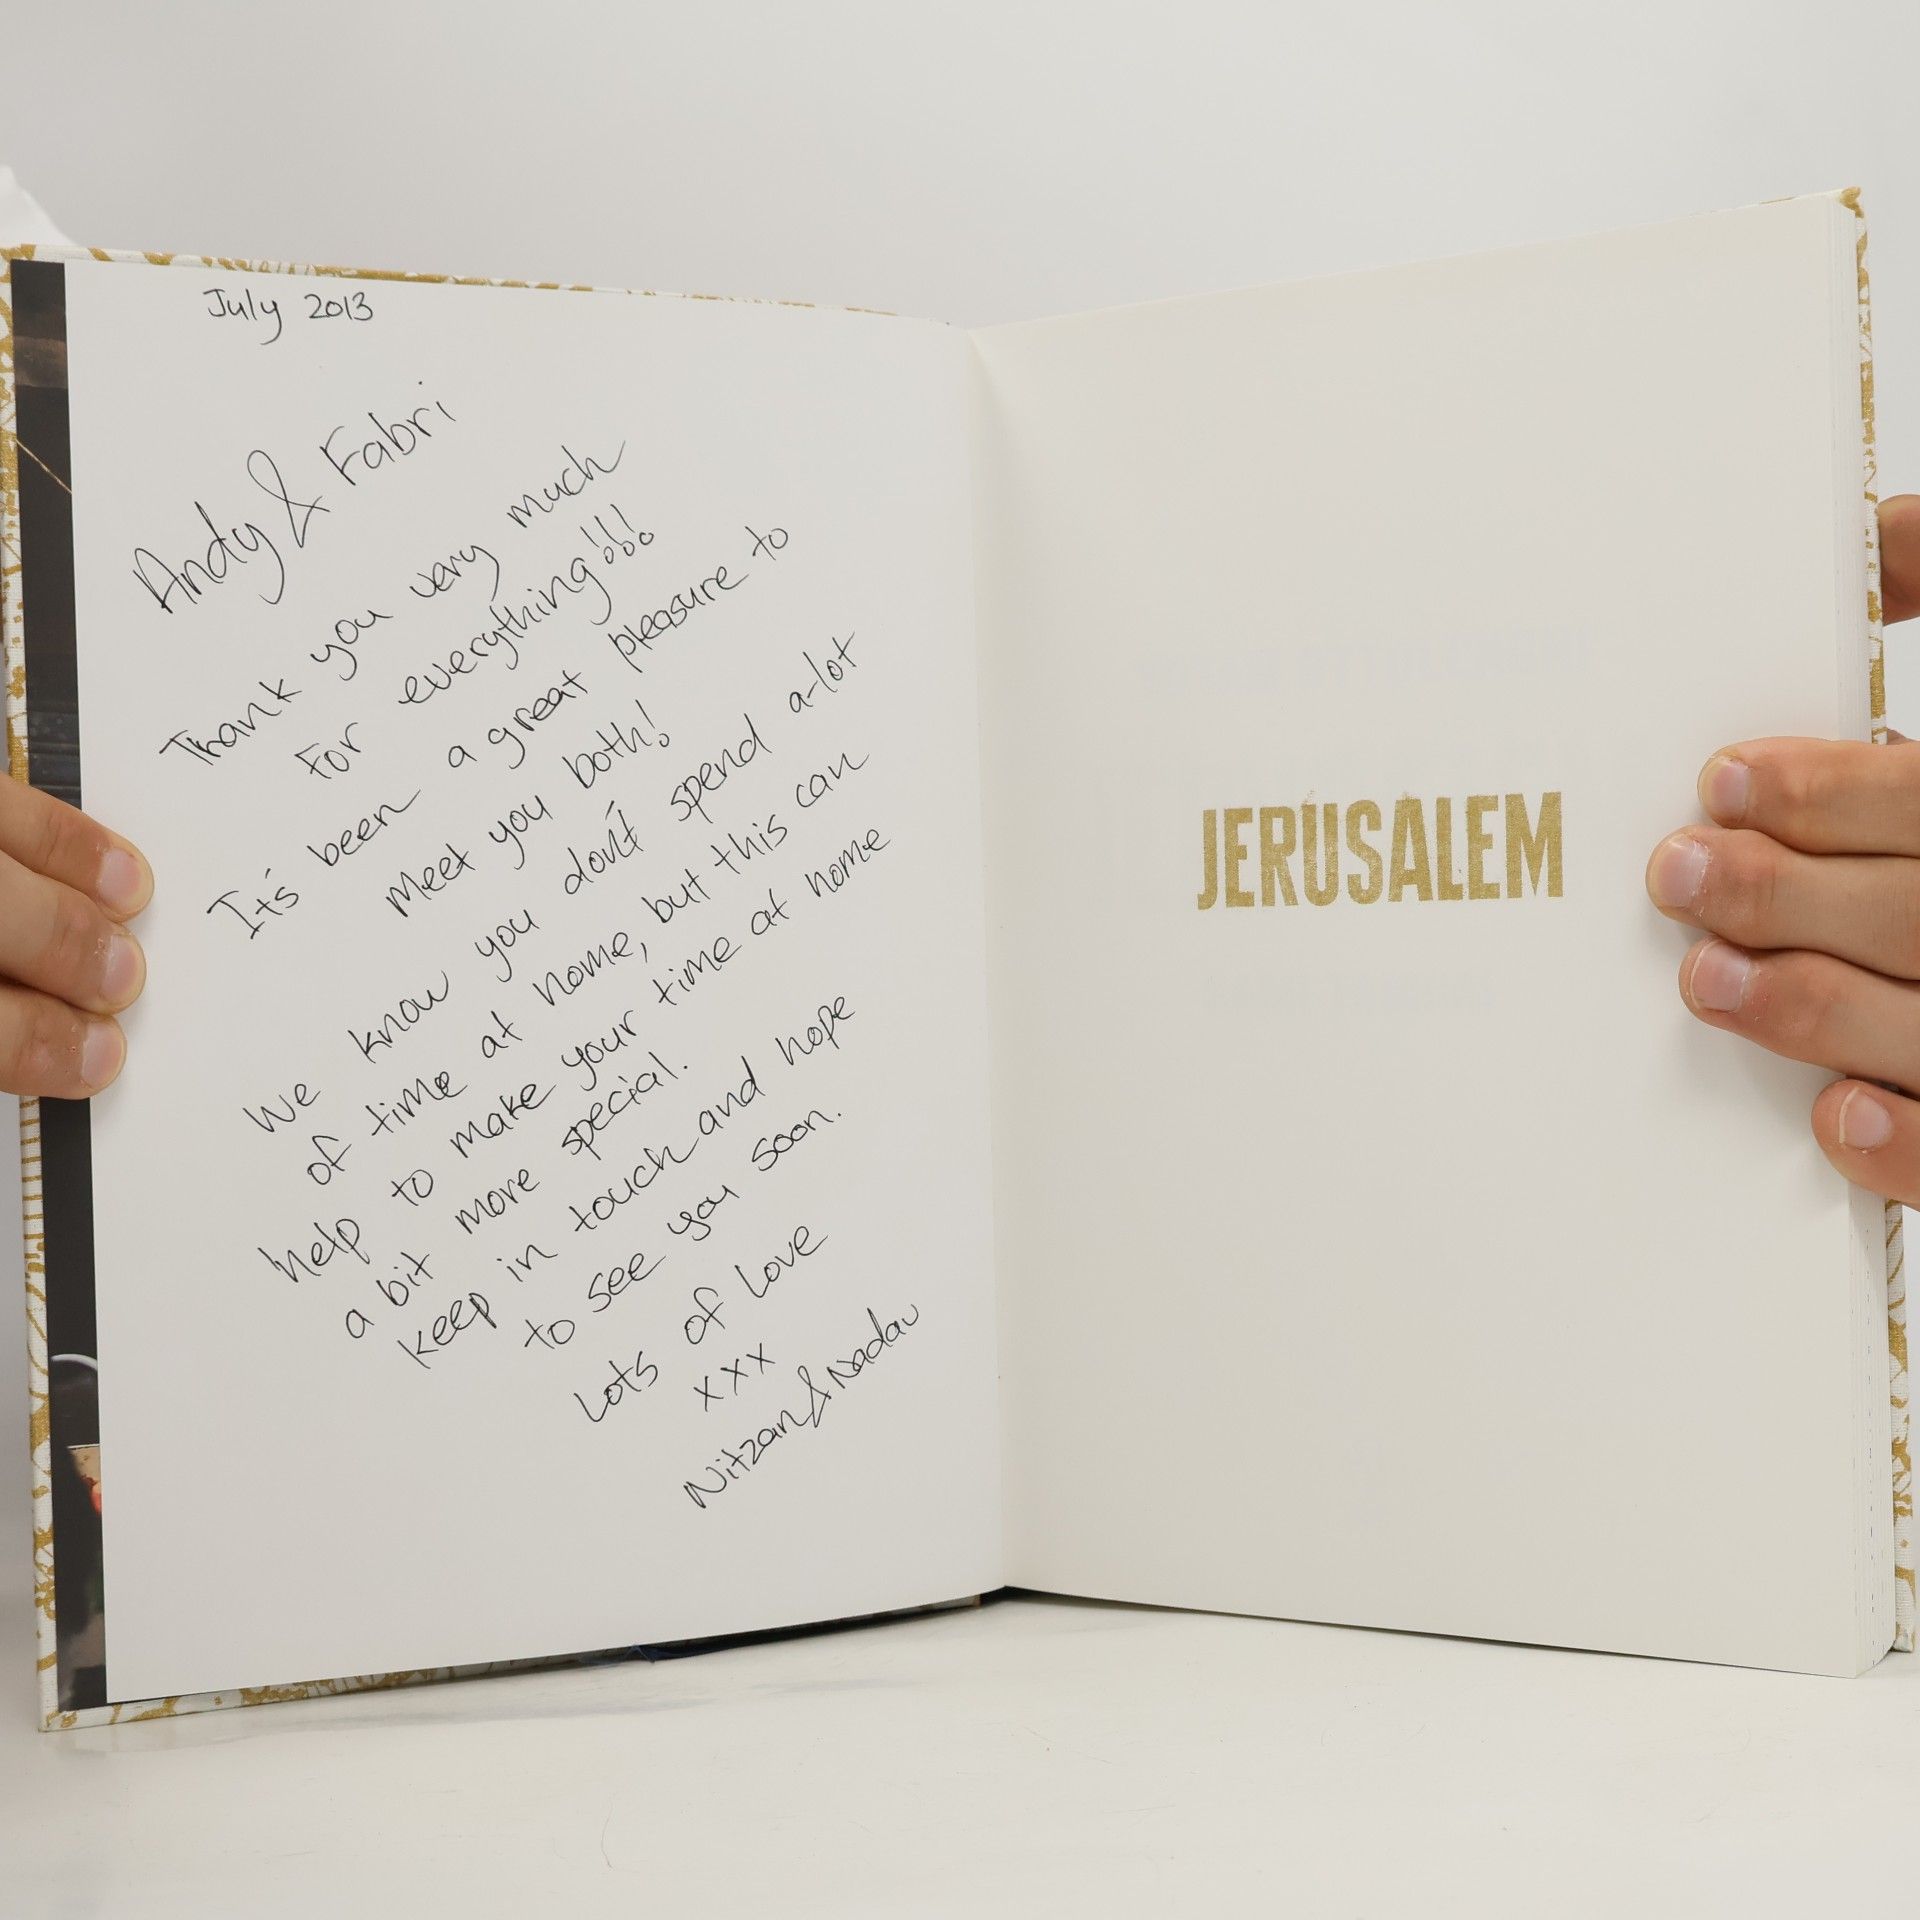 July 2013
Andy & Fabri
Thank you very much
For everything!!!
It's been a great pleasure to
meet you both!
We know you don't spend a-lot
of time at home, but this can
help to make your time at home
a bit more special.
keep in touch and hope
to see you soon.
Lots of Love
xxx
Nitzan & Nadav
JERUSALEM